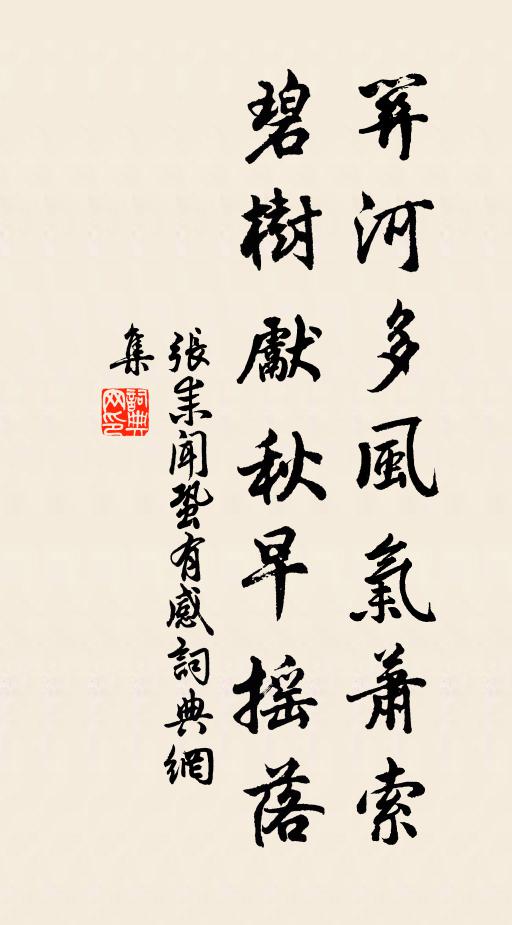 關河多風氣蕭索
碧樹獻秋早摇落
張耒聞蛩有感詞典網
集
詞典网印